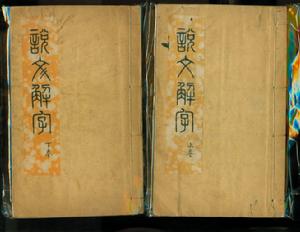 說文解字
上卷
說文解字
下卷